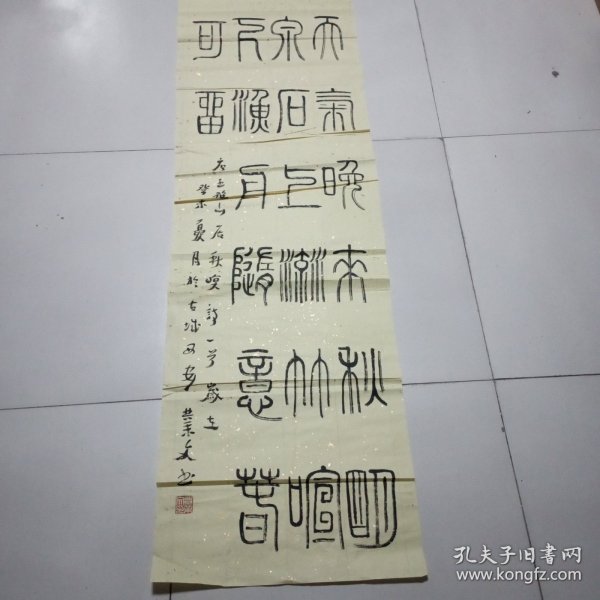 天氣晚來秋明
泉石上流竹喧
漁舟隨意春
可留
唐王維山居秋暝詩一首歲在
癸未夏月於古城西安書
孔夫子旧书网
www.kongfz.com